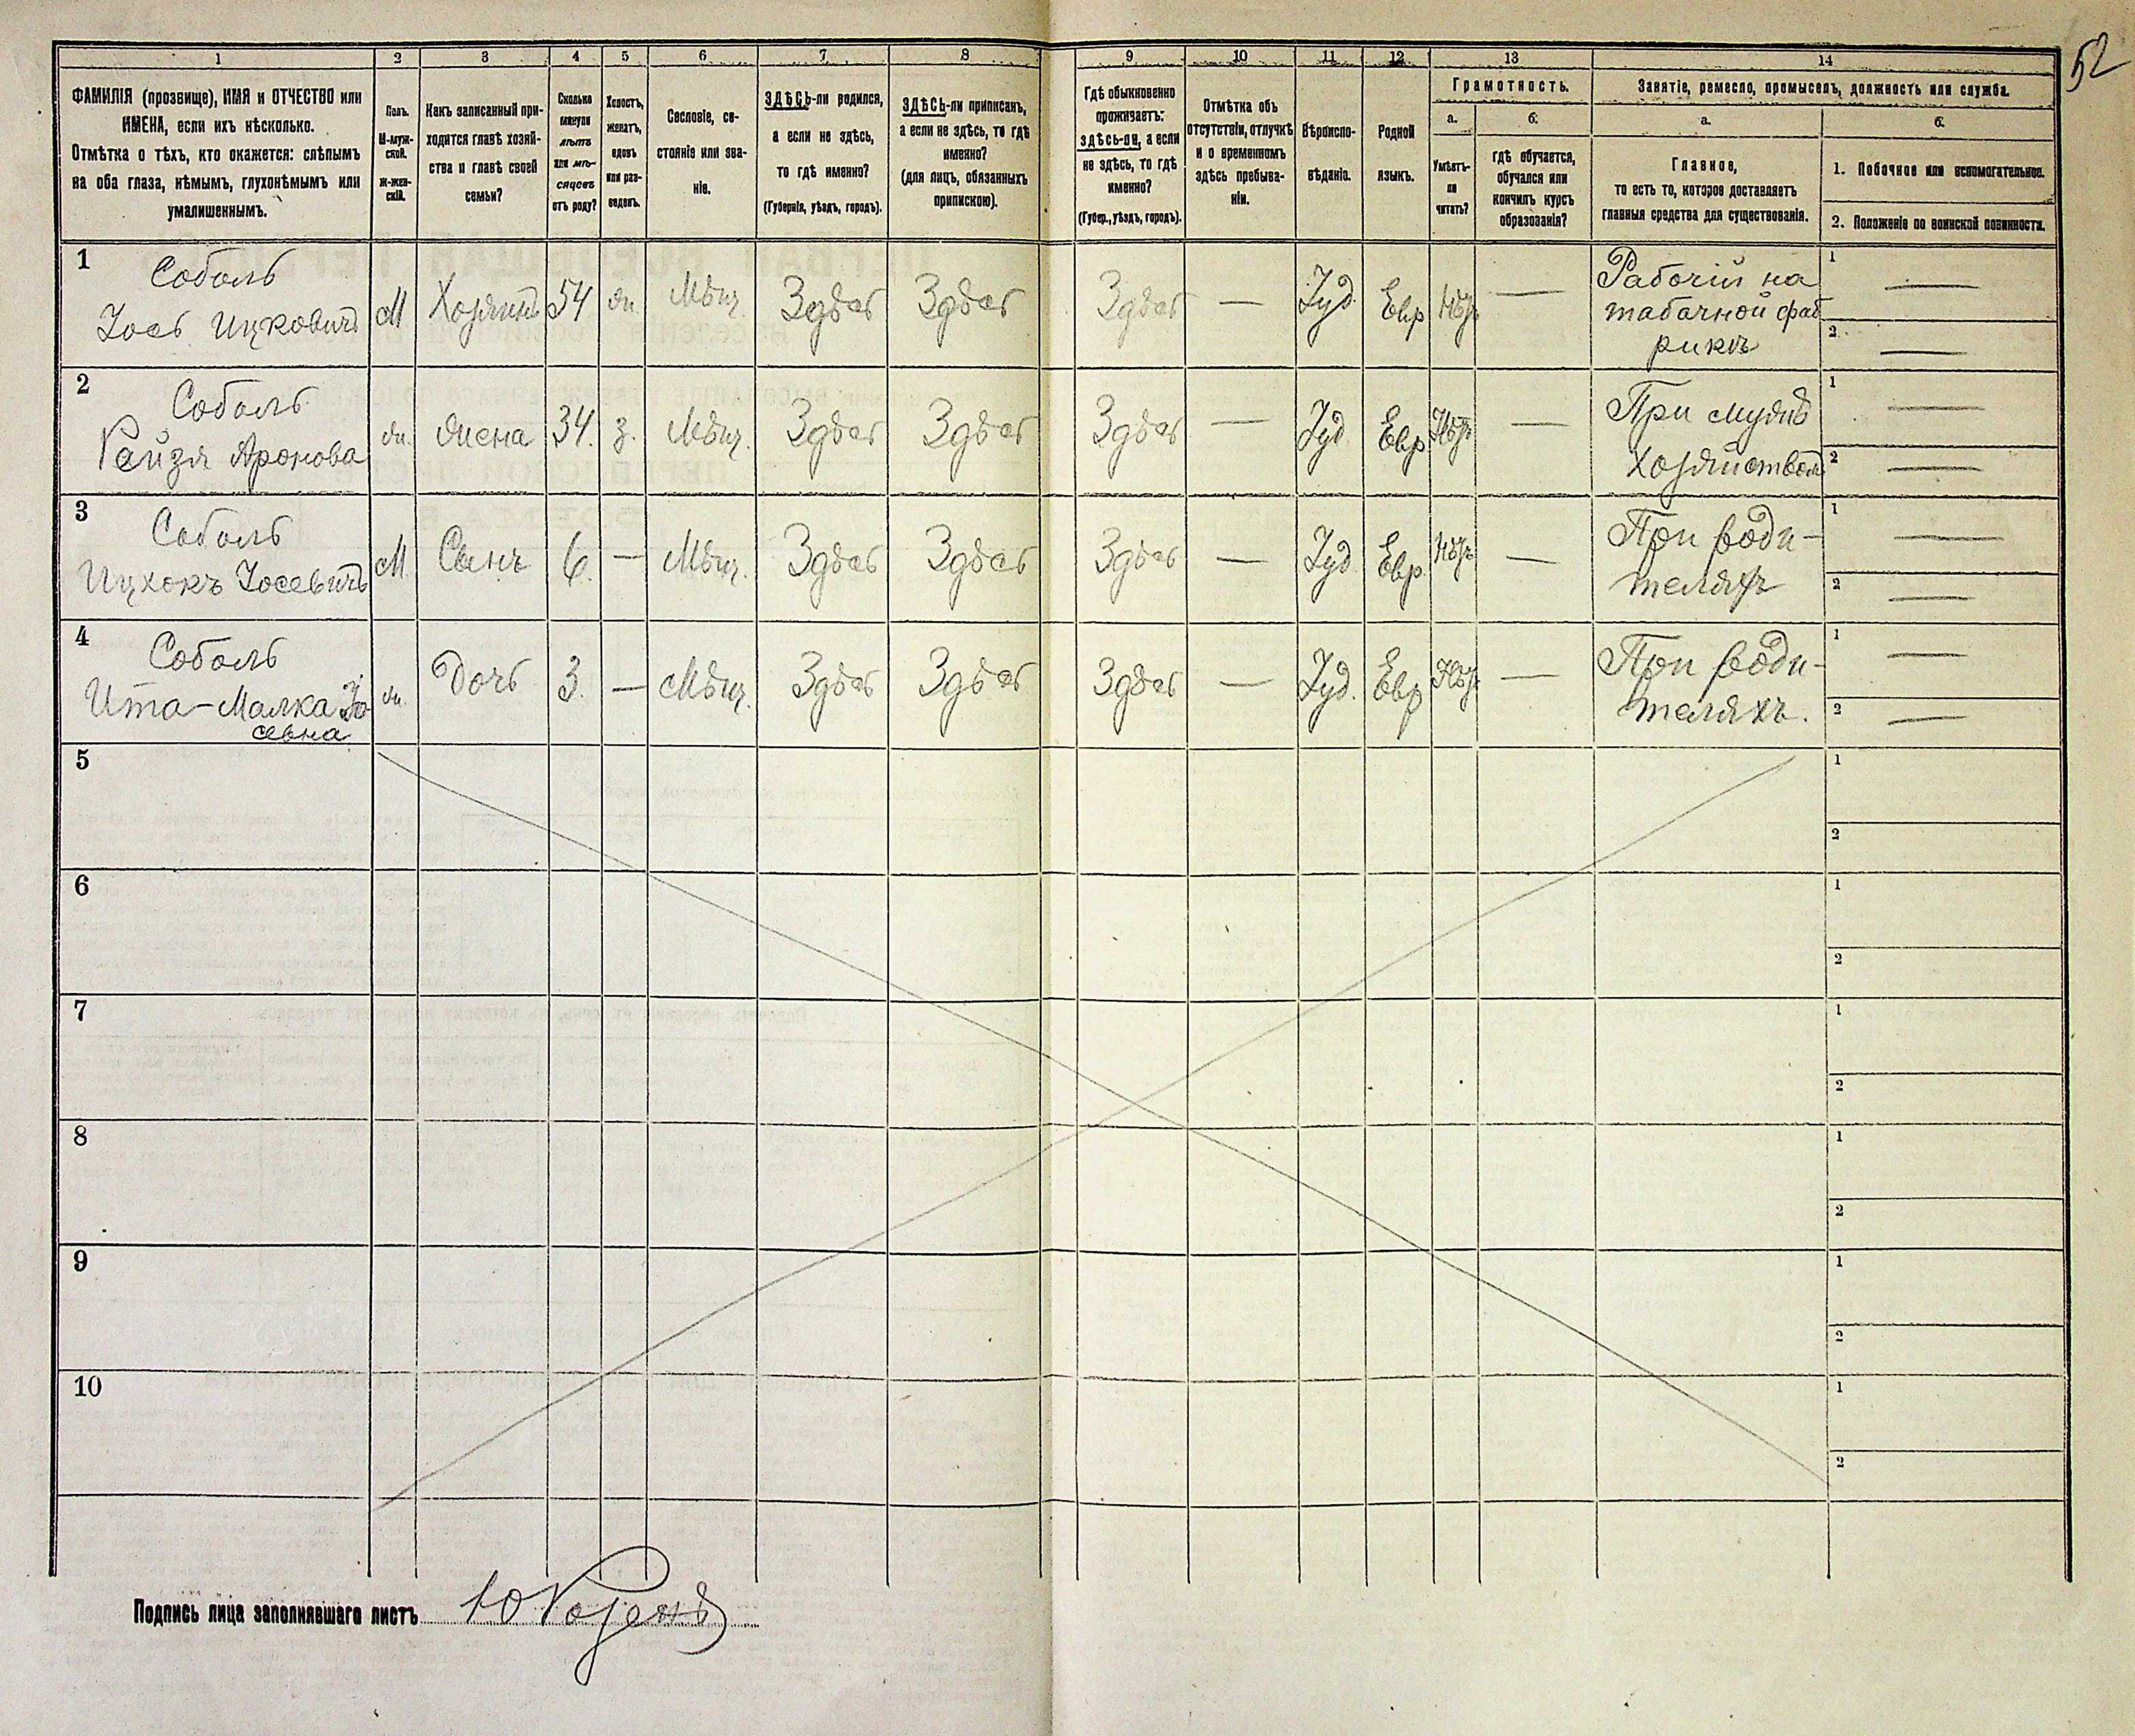 52
1 2 3 4 5 6 7 8 9 10 11 12 13 14
ФАМИЛІЯ (прозвище), ИМЯ и ОТЧЕСТВО или
ИМЕНА, если ихъ нѣсколько.
Отмѣтка о тѣхъ, кто окажется: слѣпымъ
на оба глаза, нѣмымъ, глухонѣмымъ или
умалишеннымъ.
Полъ.
М-муж-
ской.
Ж-жен-
скій.
Какъ записанный при-
ходится главѣ хозяй-
ства и главѣ своей
семьи?
Сколько
минуло
лѣтъ
или мѣ-
сяцевъ
отъ роду?
Холостъ,
женатъ,
вдовъ
или раз-
веденъ.
Сословіе, со-
стояніе или зва-
ніе.
ЗДѢСЬ-ли родился,
а если не здѣсь,
то гдѣ именно?
(Губернія, уѣздъ, городъ).
ЗДѢСЬ-ли приписанъ,
а если не здѣсь, то гдѣ
именно?
(для лицъ, обязанныхъ
припискою).
Гдѣ обыкновенно
проживаетъ:
здѣсь-ли, а если
не здѣсь, то гдѣ
именно?
(Губер., уѣздъ, городъ).
Отмѣтка объ
отсутствіи, отлучкѣ
и о временномъ
здѣсь пребыва-
ніи.
Вѣроиспо-
вѣданіе.
Родной
языкъ.
Грамотность.
а.
Умѣетъ-
ли
читать?
б.
гдѣ обучается,
обучался или
кончилъ курсъ
образованія?
Занятіе, ремесло, промыселъ, должность или служба.
а.
Главное,
то есть то, которое доставляетъ
главныя средства для существованія.
б.
1. Побочное или вспомогательное.
2. Положеніе по воинской повинности.
1 Соболь
Іось Ицковичъ М Хозяинъ 54 ж. Мѣщ. Здѣсь Здѣсь Здѣсь — Іуд. Евр Нѣтъ — Рабочій на
табачной фаб
рикѣ
1 —
2 —
2 Соболь
Рейзя Аронова ж. жена 34. з. Мѣщ. Здѣсь Здѣсь Здѣсь — Іуд. Евр Нѣтъ — При мужѣ
хозяйствомъ
1 —
2 —
3 Соболь
Ицхокъ Іосевичъ М Сынъ 6. — Мѣщ. Здѣсь Здѣсь Здѣсь — Іуд. Евр. Нѣтъ — При роди-
теляхъ
1 —
2 —
4 Соболь
Ита-Малка Іо-
севна ж. Дочь 3. — Мѣщ. Здѣсь Здѣсь Здѣсь — Іуд. Евр Нѣтъ — При роди-
теляхъ.
1 —
2 —
5 1
2
6 1
2
7 1
2
8 1
2
9 1
2
10 1
2
Подпись лица заполнявшаго листъ